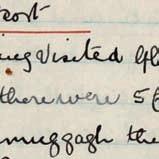 port
ing visited Gl
there were 5
muggagh the